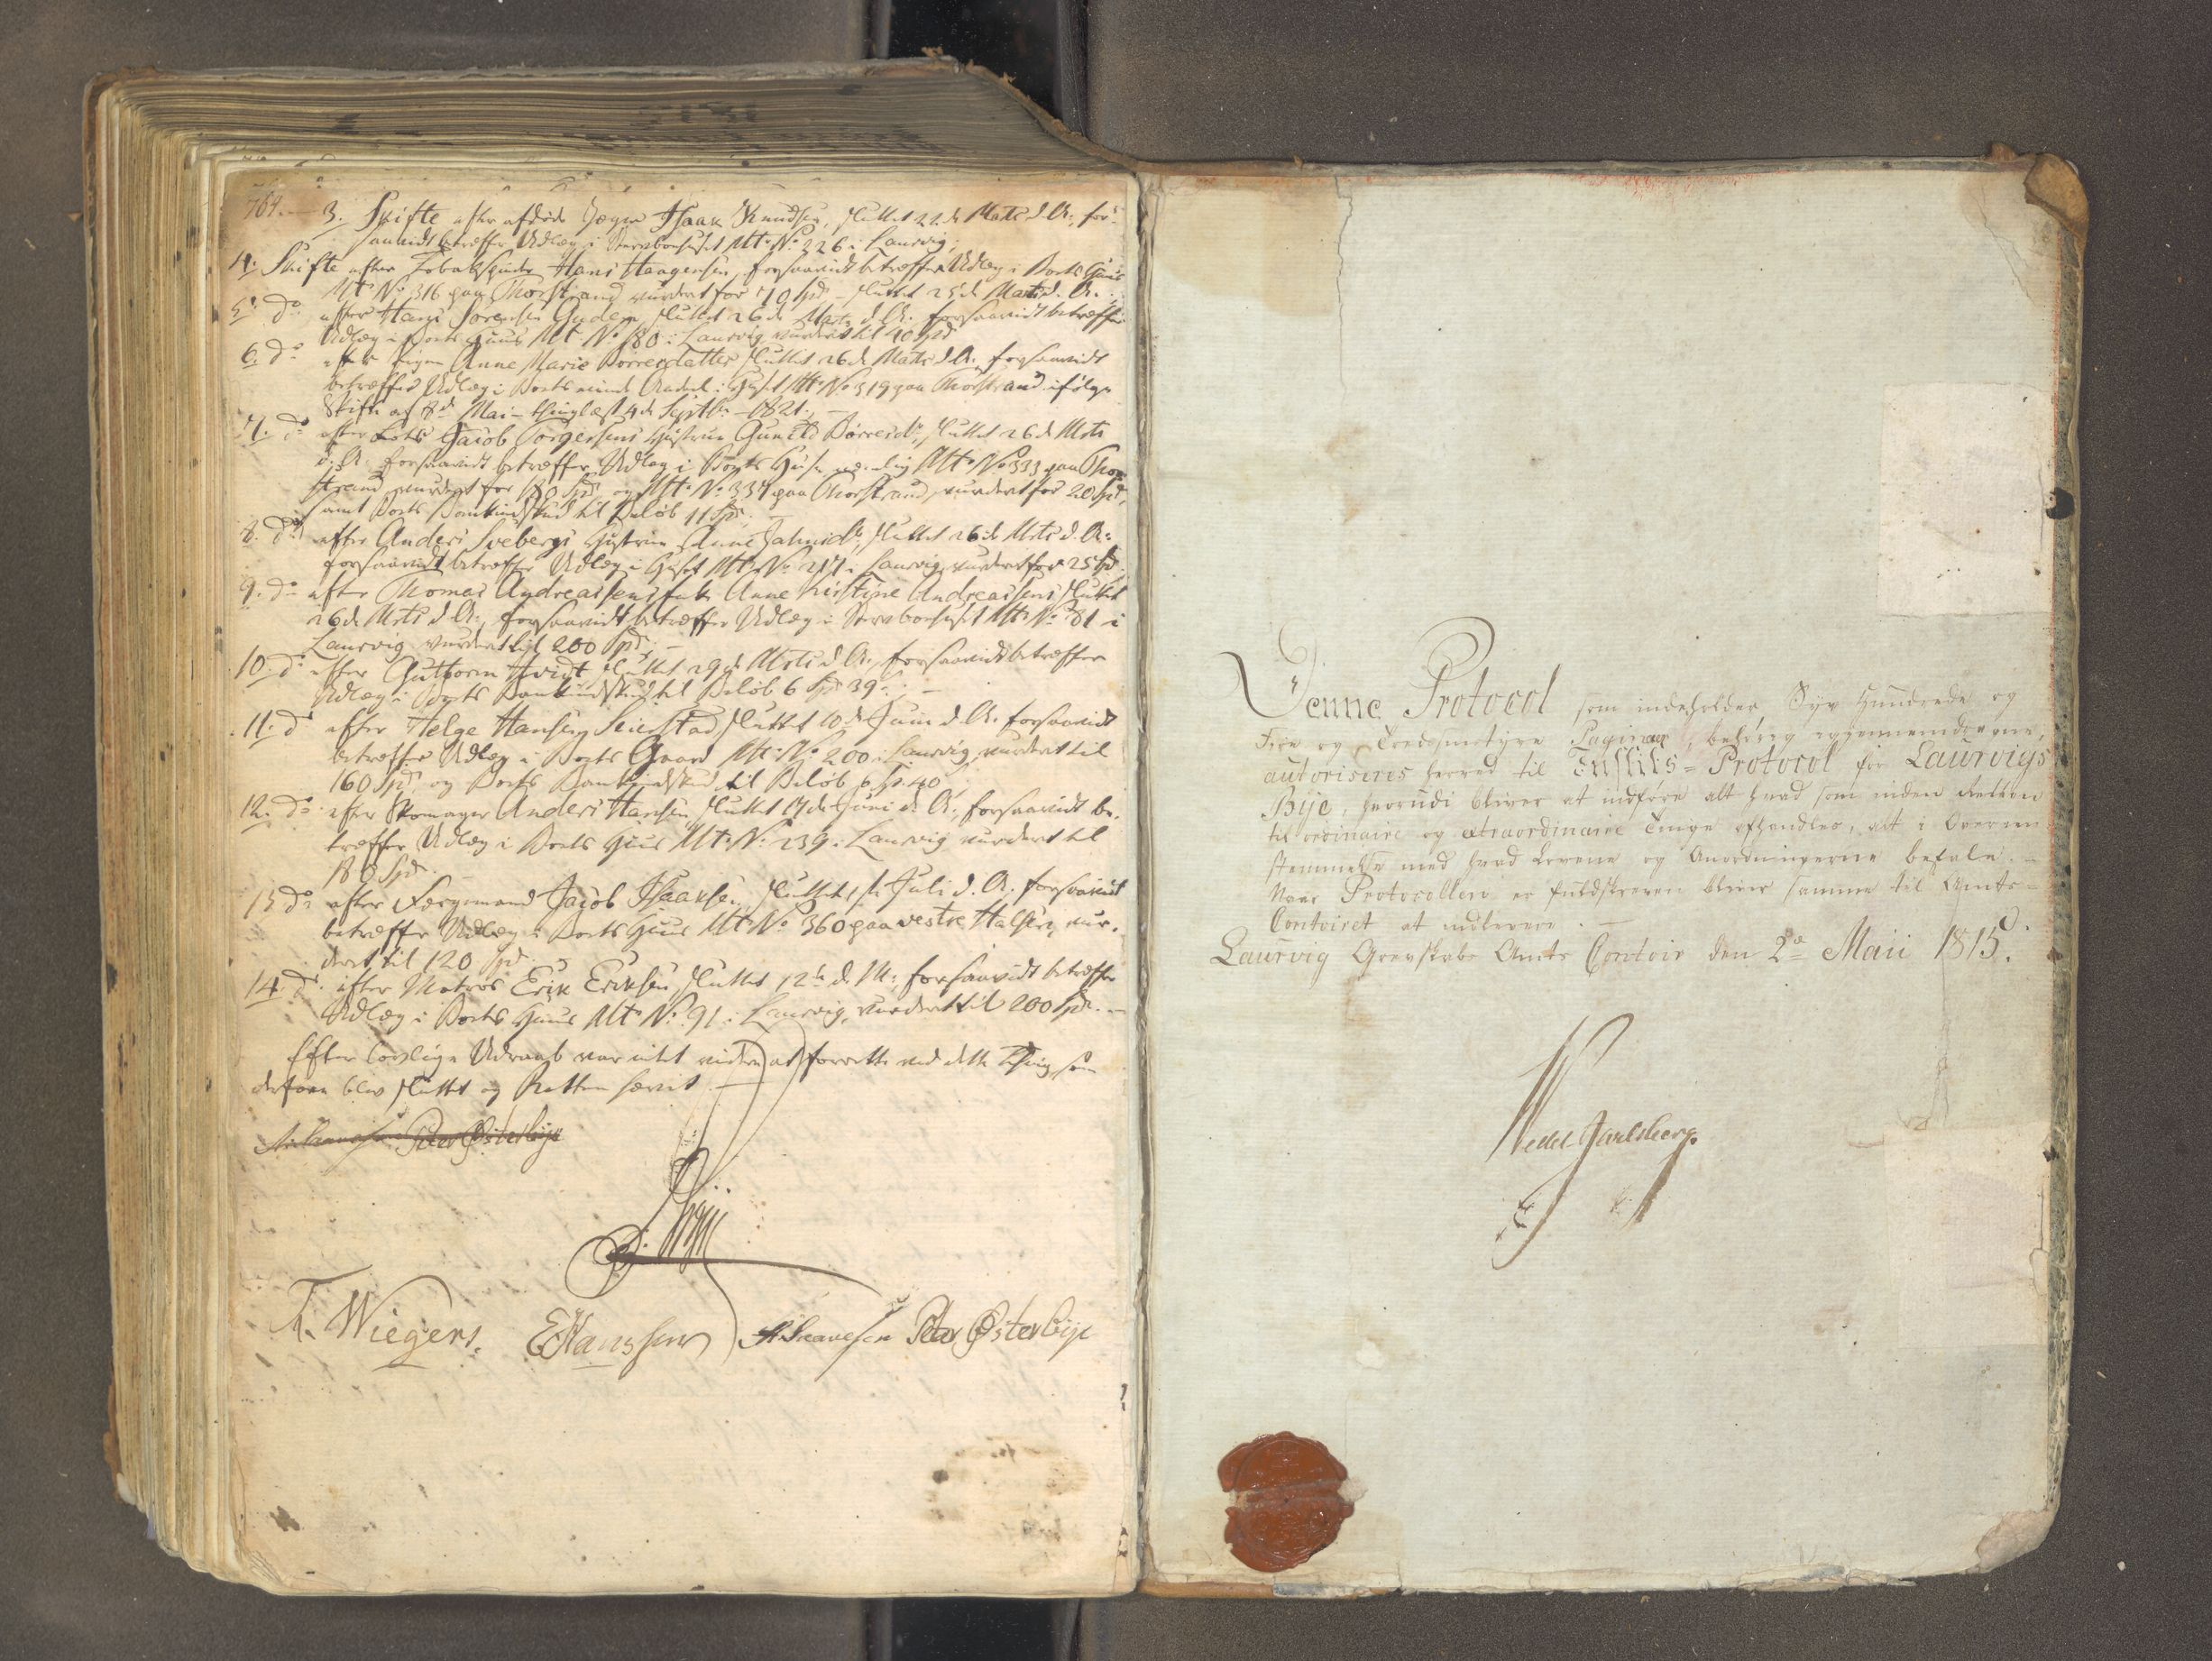 764.
3. Skifte efter afdøde Isaak Knudsen, sluttet 22de Marts d. A., for-
saavidt betræffer Udlæg i Stervboehuset Mt. No. 226 i Laurvig;
4. Skifte efter Hans Haagensen, forsaavidt betræffer Udlæg i Boets Huus
Mt. No. 316 paa Thorstrand vurderet for 70 Spd – sluttet 25de Marts d. A.
5. do efter Hans Sørensen sluttet 26de Marts d. A. forsaavidt betræffer
Udlæg i Boets Huus Mt No. 180 i Laurvig vurderet til 40 Spd
6. do efter Pigen Anne Marie Børresdatter sluttet 26de Marts d. A. forsaavidt
betræffer Udlæg i Boets Andeel i Huset Mt. No. 319 paa Thorstrand ifølge
Skifte af 8de Mai – thinglæst 4de Septbr – 1821. –
7. do efter Lots Jacob Torgersens Hustrue Gunild Børresdr, sluttet 26de Mrts
d. A. forsaavidt betræffer Udlæg i Boets Huse nemlig Mt. No. 333 paa Thor-
strand vurderet for 180 Spd og Mt. No. 334 paa Thorstrand, vurderet for 20 Spd,
samt Boets til Beløb 11 Spd. –
8. do efter Anders Svebergs Hustrue sluttet 26de Mrts d. A.
forsaavidt betræffer Udlæg i Huset Mt. No. 217 i Laurvig, vurderet for 25 Spd.
9. do efter Thomas Andreassens Enke Anne Kirstine Andreassens sluttet
26de Mrts d. A., forsaavidt betræffer Udlæg i Stervboehuset Mt. No. 81 i
Laurvig vurderet til 200 Spd; –
10. do efter Guthorm Hvidt sluttet 29de Mrts d. A., forsaavidt betræffer
Udlæg i Boets til Beløb 6 Spd 39 s; –
11. do efter Helge Hansen sluttet 10de Juni d. A. forsaavidt
betræffer Udlæg i Boets Gaard Mt. No. 200 i Laurvig, vurderet til
160 Spd, og Boets til Beløb 6 Sp. 40
12. do efter Skomager Anders Hansen, sluttet 17de Juni d. A., forsaavidt be-
træffer Udlæg i Boets Huus Mt. No. 239 i Laurvig vurderet til
180 Spd. –
13 do efter Færgemand Jacob Isaaksen, sluttet Juli d. A. forsaavidt
betræffer Udlæg i Boets Huus Mt No. 360 paa vestre Halsen, vur-
deret til 120 Spd. –
14. do efter Matros Erik Eriksen, sluttet 12te d. M., forsaavidt betræffer
Udlæg i Boets Huus Mt. No. 91 i Laurvig, vurderet til 200 Spd. –
Efter lovlige Udraab var intet videre at forrette ved dette Thing, som
derfore blev sluttet og Retten hævet. –
Peter Østerbye
T. Wiegers. E Hanssen Peter Østerbye
Denne Protocol som indeholder Syv Hundrede og
Fire og Tredsindstyve Paginaer, behørig igjennemdragne,
autoriseres herved til Justits-Protocol for Laurvigs
Bye, hvorudi bliver at indføre alt hvad som inden Retten
til ordinaire og extraordinaire Tinge afhandles, alt i Overeens-
stemmelse med hvad Lovene og Anordningerne befale. –
Naar Protocollen er fuldskreven bliver samme til Amts-
Contoiret at indlevere. –
Laurvig Grevskabs Amts Contoir den 2de Maii 1815.
Wedel Jarlsberg.